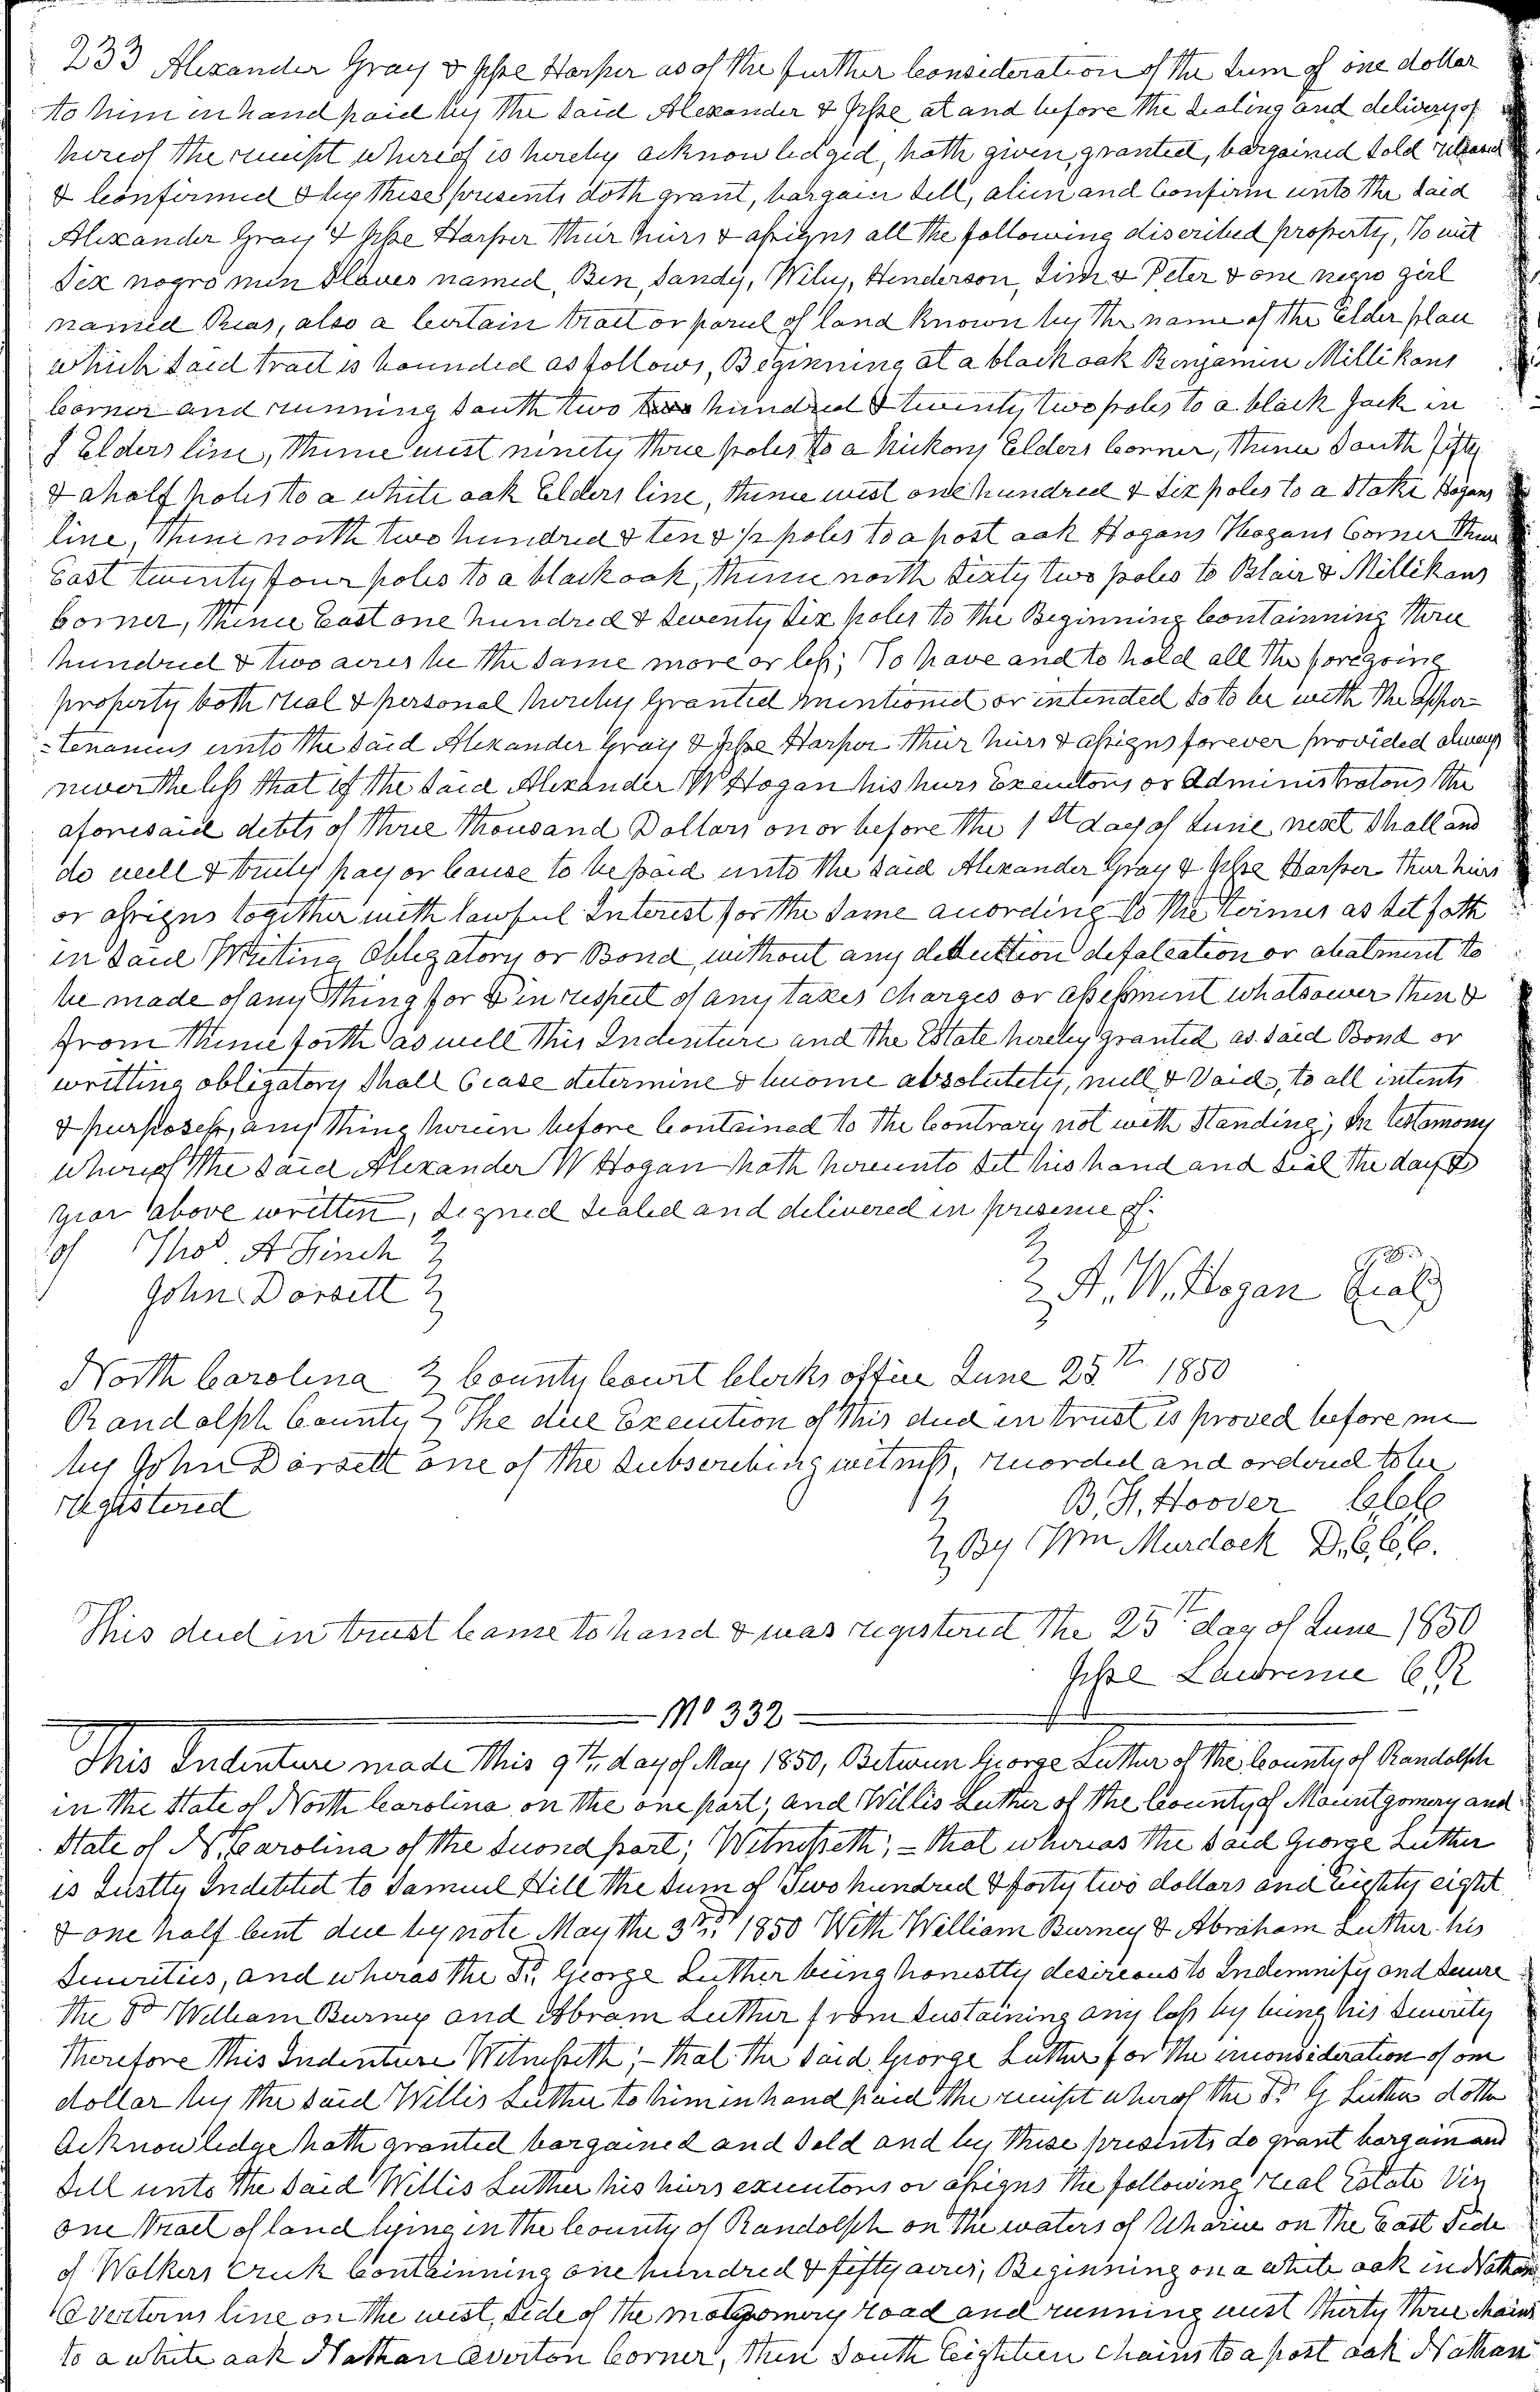 233 Alexander Gray & Jesse Harper as of the further Consideration of the Sum of one dollar
to him in hand paid by the said Alexander & Jesse at and before the Sealing and delivery of
hereof the receipt whereof is hereby acknowledged, hath given, granted, bargained Sold released
& Confirmed & by these presents doth grant, bargain Sell, alien and Confirm unto the said
Alexander Gray & Jesse Harper their heirs & assigns all the following discribed property, To wit
Six nogro men Slaves named, Ben, Sandy, Wiley, Henderson, Sim & Peter & one negro girl
named also a Certain tract or parcel of land Known by the name of the Elder place
which said tract is bounded as follows, Beginning at a black oak Benjamin Millikans
Corner and running South two hundred & twenty two poles to a black Jack in
Elders line, thence west ninety three poles to a hickory Elders Corner, thence South fifty
& a half poles to a white oak Elders line, thence west one hundred & Six poles to a Stake Hogans
line, thence north two hundred & ten & ½ poles to a post oak Hogans Hogans Corner thence
East twenty four poles to a black oak, thence north Sixty two poles to Blair & Millikans
Corner, thence East one hundred & Seventy Six poles to the Beginning Containning three
hundred & two acres be the Same more or less; To have and to hold all the foregoing
property both real & personal hereby Granted mentioned or intended So to be with the apper-
-tenances unto the said Alexander Gray & Jesse Harper their heirs & assigns forever provided always
nevertheless that if the said Alexander W Hogan his heirs Executors or Administrators the
aforesaid debts of Three Thousand Dollars on or before the 1st day of June next Shall and
do well & truley pay or Cause to be paid unto the said Alexander Gray & Jesse Harper their heirs
or assigns together with lawful Interest for the Same acording to the termes as Set foth
in Said Writing Obligatory or Bond, without any deduction defalcation or abatment to
be made of any thing for & in respect of any taxes charges or assessment whatsoever then &
from thence forth as well this Indenture and the Estate hereby granted as Said Bond or
writting obligatory Shall Cease determine & become absolutely, null & Void, to all intents
& purposes, any thing herein before Contained to the Contrary not with Standing; In testamony
whereof the said Alexander W Hogan hath hereunto Set his hand and Seal the day &
year above written, Signed Sealed and delivered in presence of.
of Thos. A Finch
John Dorsett A. W. Hogan Seal
North Carolina County Court Clerks office June 25th 1850
Randolph County The due Execution of this deed in trust is proved before me
by John Dorsett one of the Subscribing witness, recorded and ordered to be
registered B. F. Hoover Clk
By Wm Murdock D. C. C. C.
This deed in trust Came to hand & was registered the 25th day of June 1850
Jesse Lawrence C. R
No 332
This Indenture made this 9th day of May 1850, Between George Luther of the County of Randolph
in the State of North Carolina on the one part; and Willis Luther of the County of Mountgomery and
State of N. Carolina of the Second part; Witnesseth; - that whereas the said George Luther
is Justly Indebted to Samuel Hill the Sum of Two hundred & forty two dollars and eighty eight
& one half Cent due by note May the 3rd 1850 With William Burney & Abraham Luther his
Securities, and wheras the Sd. George Luther being honestly desireous to Indemnify and Secure
the Sd William Burney and Abram Luther from Sustaining any loss by being his Security
therefore this Indenture Witnesseth; - that the said George Luther for the inconsideration of one
dollar by the said Willis Luther to him in hand paid the receipt wherof the Sd. G Luther doth
Acknowledge hath granted bargained and Sold and by these presents do grant bargain and
Sell unto the said Willis Luther his heirs executors or assigns the following real Estate Viz
one tract of land lying in the County of Randolph on the waters of Uharie on the East Side
of Walkers Creek Containning one hundred & fifty acres, Beginning on a white oak in Nathan
Evertons line on the west, Side of the motgomery road and running west thirty three chains
to a white oak Nathan Everton Corner, then South Eighteen chains to a post oak Nathan